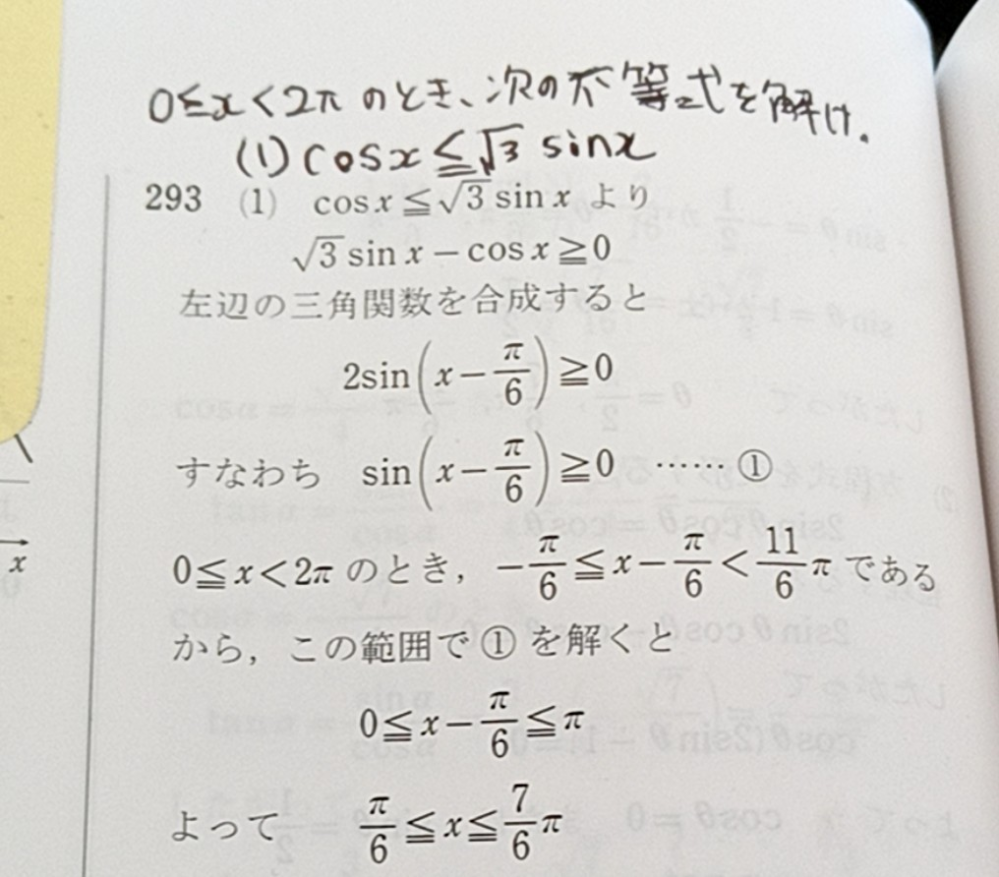 0≦x<2πのとき、次の不等式を解け.
(1) cosx≦√3 sinx
293 (1) cosx≦√3 sinx より
√3 sinx−cosx≧0
左辺の三角関数を合成すると
2sin(x−π/6)≧0
すなわち sin(x−π/6)≧0 ……①
0≦x<2π のとき，−π/6≦x−π/6<11/6π である
から，この範囲で①を解くと
0≦x−π/6≦π
よって π/6≦x≦7/6π
x